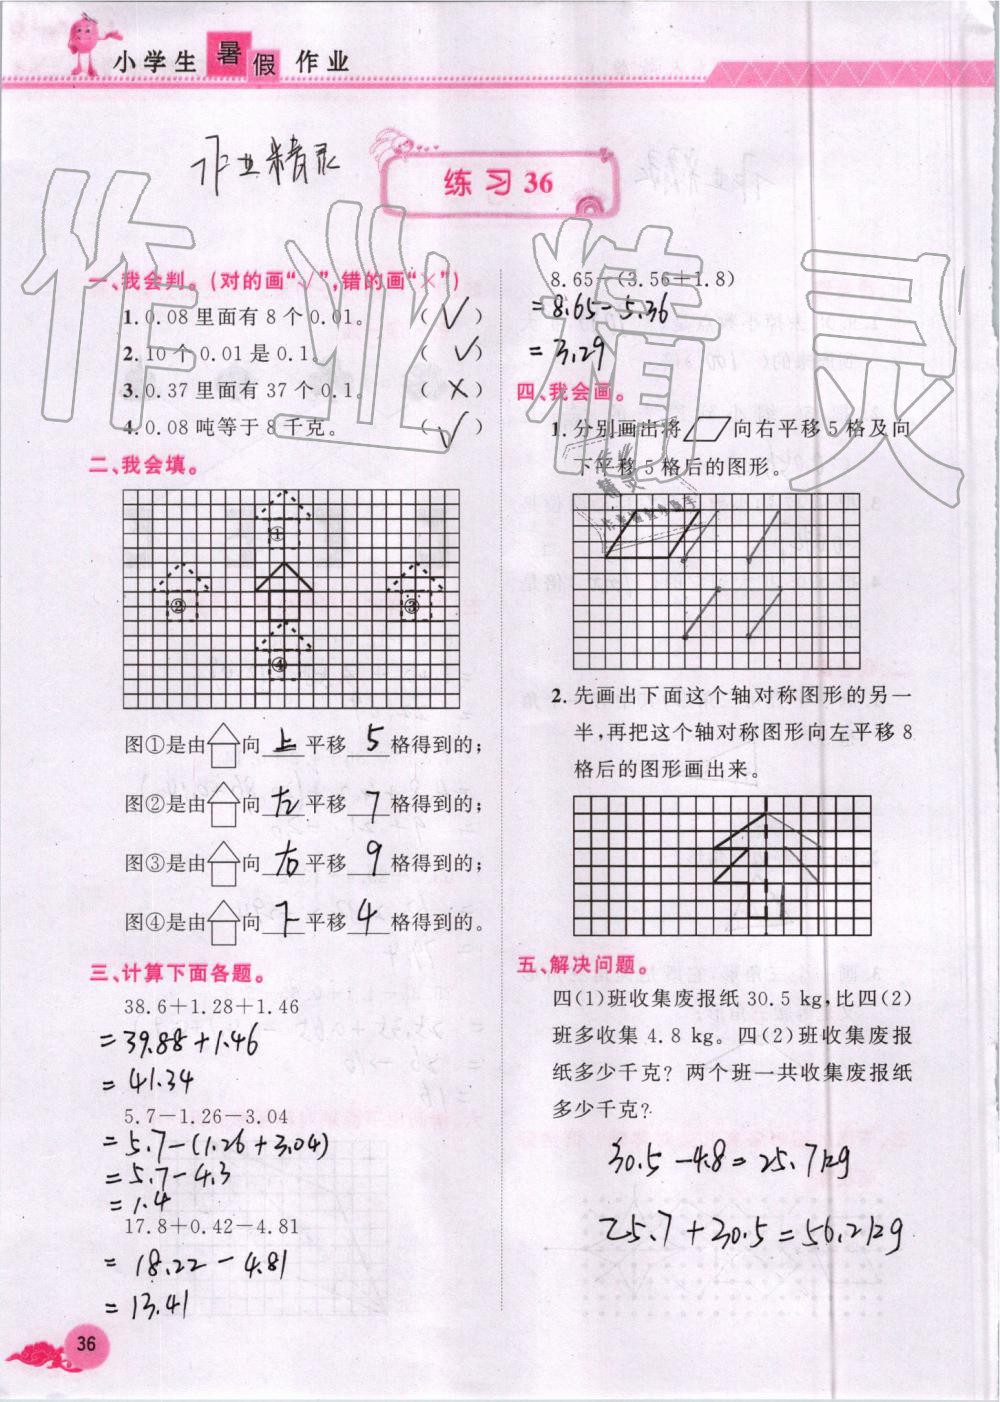 小学生暑假作业
作业精灵
练习36
一、我会判。(对的画“√”,错的画“×”)
1.0.08里面有8个0.01。 ( √ )
2.10个0.01是0.1。 ( √ )
3.0.37里面有37个0.1。 ( × )
4.0.08吨等于8千克。 ( √ )
二、我会填。
①
② ③
④
图①是由 向 上 平移 5 格得到的;
图②是由 向 左 平移 7 格得到的;
图③是由 向 右 平移 9 格得到的;
图④是由 向 下 平移 4 格得到的。
三、计算下面各题。
38.6+1.28+1.46
=39.88+1.46
=41.34
5.7-1.26-3.04
=5.7-(1.26+3.04)
=5.7-4.3
=1.4
17.8+0.42-4.81
=18.22-4.81
=13.41
36
8.65-(3.56+1.8)
=8.65-5.36
=3.29
四、我会画。
1.分别画出将 向右平移5格及向
下平移5格后的图形。
2.先画出下面这个轴对称图形的另一
半,再把这个轴对称图形向左平移8
格后的图形画出来。
五、解决问题。
四(1)班收集废报纸30.5 kg,比四(2)
班多收集4.8 kg。四(2)班收集废报
纸多少千克?两个班一共收集废报纸
多少千克?
30.5-4.8=25.7kg
25.7+30.5=56.2kg
作业精灵
作业精灵